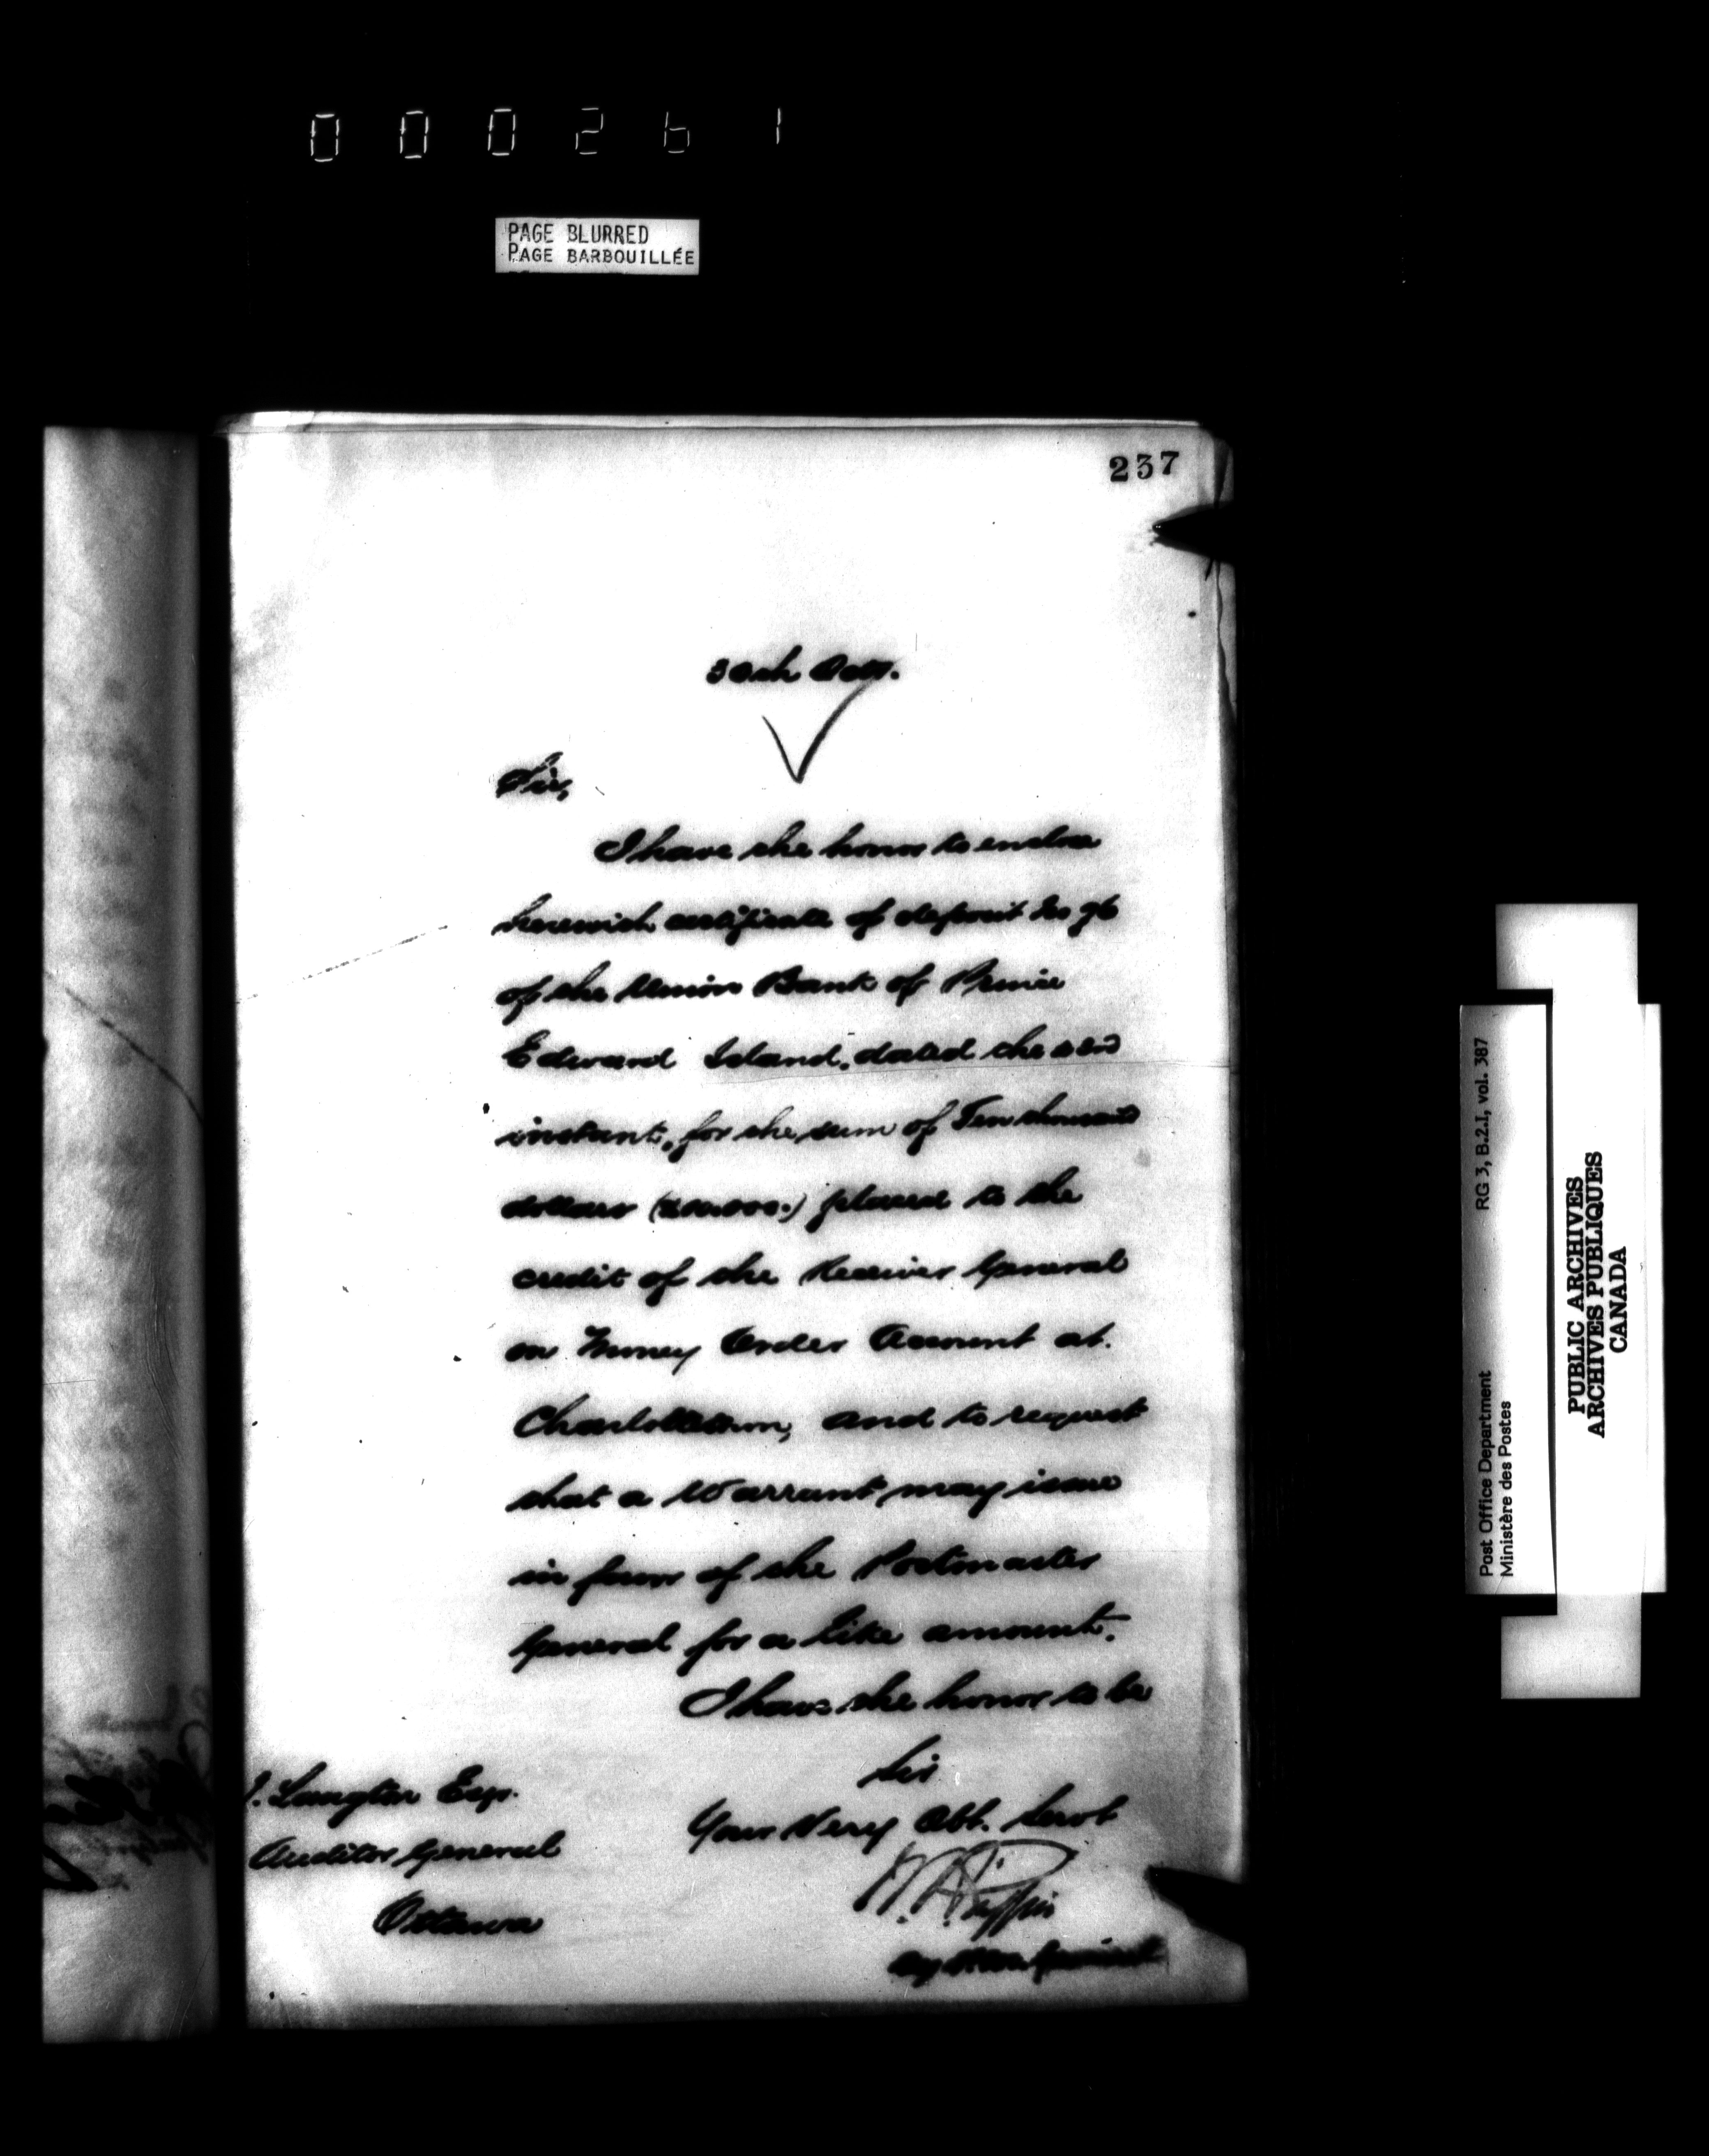 000261
PAGE BLURRED
PAGE BARBOUILLÉE
237
30th Octr.
Sir,
I have the honor to enclose
herewith certificate of deposit No 96
of the Union Bank of Prince
Edward Island, dated the
instant, for the sum of Ten thousand
dollars ($10,000.) placed to the
credit of the Receiver General
on Money Order Account at
Charlottetown, and to request
that a Warrant may issue
in favor of the Postmaster
General for a like amount.
I have the honor to be
Sir
Your Very Obt. Servt
J. Langton Esq.
Auditor General
Ottawa
RG 3, B.2.I, vol. 387
Post Office Department
Ministère des Postes
PUBLIC ARCHIVES
ARCHIVES PUBLIQUES
CANADA